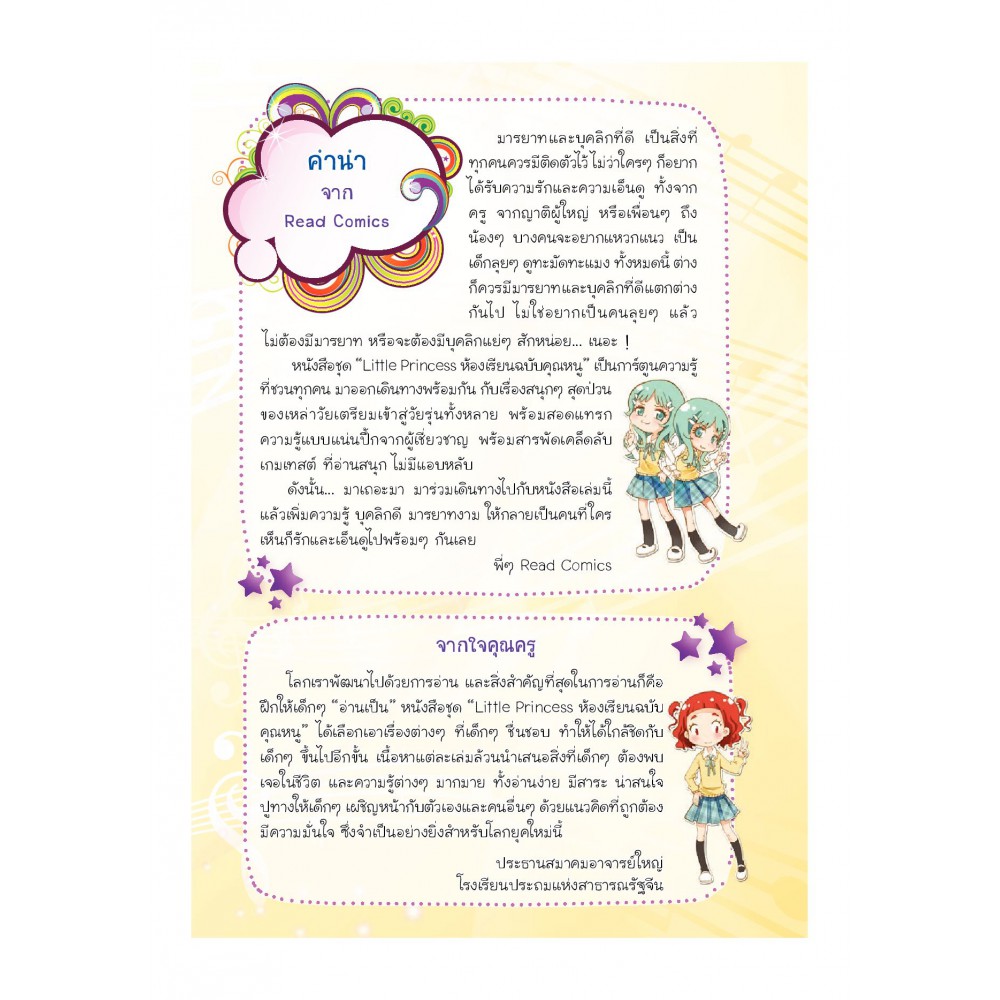 คำนำ
จาก
Read Comics
มารยาทและบุคลิกที่ดี เป็นสิ่งที่
ทุกคนควรมีติดตัวไว้ ไม่ว่าใครๆ ก็อยาก
ได้รับความรักและความเอ็นดู ทั้งจาก
ครู จากญาติผู้ใหญ่ หรือเพื่อนๆ ถึง
น้องๆ บางคนจะอยากแหวกแนว เป็น
เด็กลุยๆ ดูทะมัดทะแมง ทั้งหมดนี้ ต่าง
ก็ควรมีมารยาทและบุคลิกที่ดีแตกต่าง
กันไป ไม่ใช่อยากเป็นคนลุยๆ แล้ว
ไม่ต้องมีมารยาท หรือจะต้องมีบุคลิกแย่ๆ สักหน่อย... เนอะ !
หนังสือชุด “Little Princess ห้องเรียนฉบับคุณหนู” เป็นการ์ตูนความรู้
ที่ชวนทุกคน มาออกเดินทางพร้อมกัน กับเรื่องสนุกๆ สุดป่วน
ของเหล่าวัยเตรียมเข้าสู่วัยรุ่นทั้งหลาย พร้อมสอดแทรก
ความรู้แบบแน่นปึ้กจากผู้เชี่ยวชาญ พร้อมสารพัดเคล็ดลับ
เกมเทสต์ ที่อ่านสนุก ไม่มีแอบหลับ
ดังนั้น... มาเถอะมา มาร่วมเดินทางไปกับหนังสือเล่มนี้
แล้วเพิ่มความรู้ บุคลิกดี มารยาทงาม ให้กลายเป็นคนที่ใคร
เห็นก็รักและเอ็นดูไปพร้อมๆ กันเลย
พี่ๆ Read Comics
จากใจคุณครู
โลกเราพัฒนาไปด้วยการอ่าน และสิ่งสำคัญที่สุดในการอ่านก็คือ
ฝึกให้เด็กๆ “อ่านเป็น” หนังสือชุด “Little Princess ห้องเรียนฉบับ
คุณหนู” ได้เลือกเอาเรื่องต่างๆ ที่เด็กๆ ชื่นชอบ ทำให้ได้ใกล้ชิดกับ
เด็กๆ ขึ้นไปอีกขั้น เนื้อหาแต่ละเล่มล้วนนำเสนอสิ่งที่เด็กๆ ต้องพบ
เจอในชีวิต และความรู้ต่างๆ มากมาย ทั้งอ่านง่าย มีสาระ น่าสนใจ
ปูทางให้เด็กๆ เผชิญหน้ากับตัวเองและคนอื่นๆ ด้วยแนวคิดที่ถูกต้อง
มีความมั่นใจ ซึ่งจำเป็นอย่างยิ่งสำหรับโลกยุคใหม่นี้
ประธานสมาคมอาจารย์ใหญ่
โรงเรียนประถมแห่งสาธารณรัฐจีน